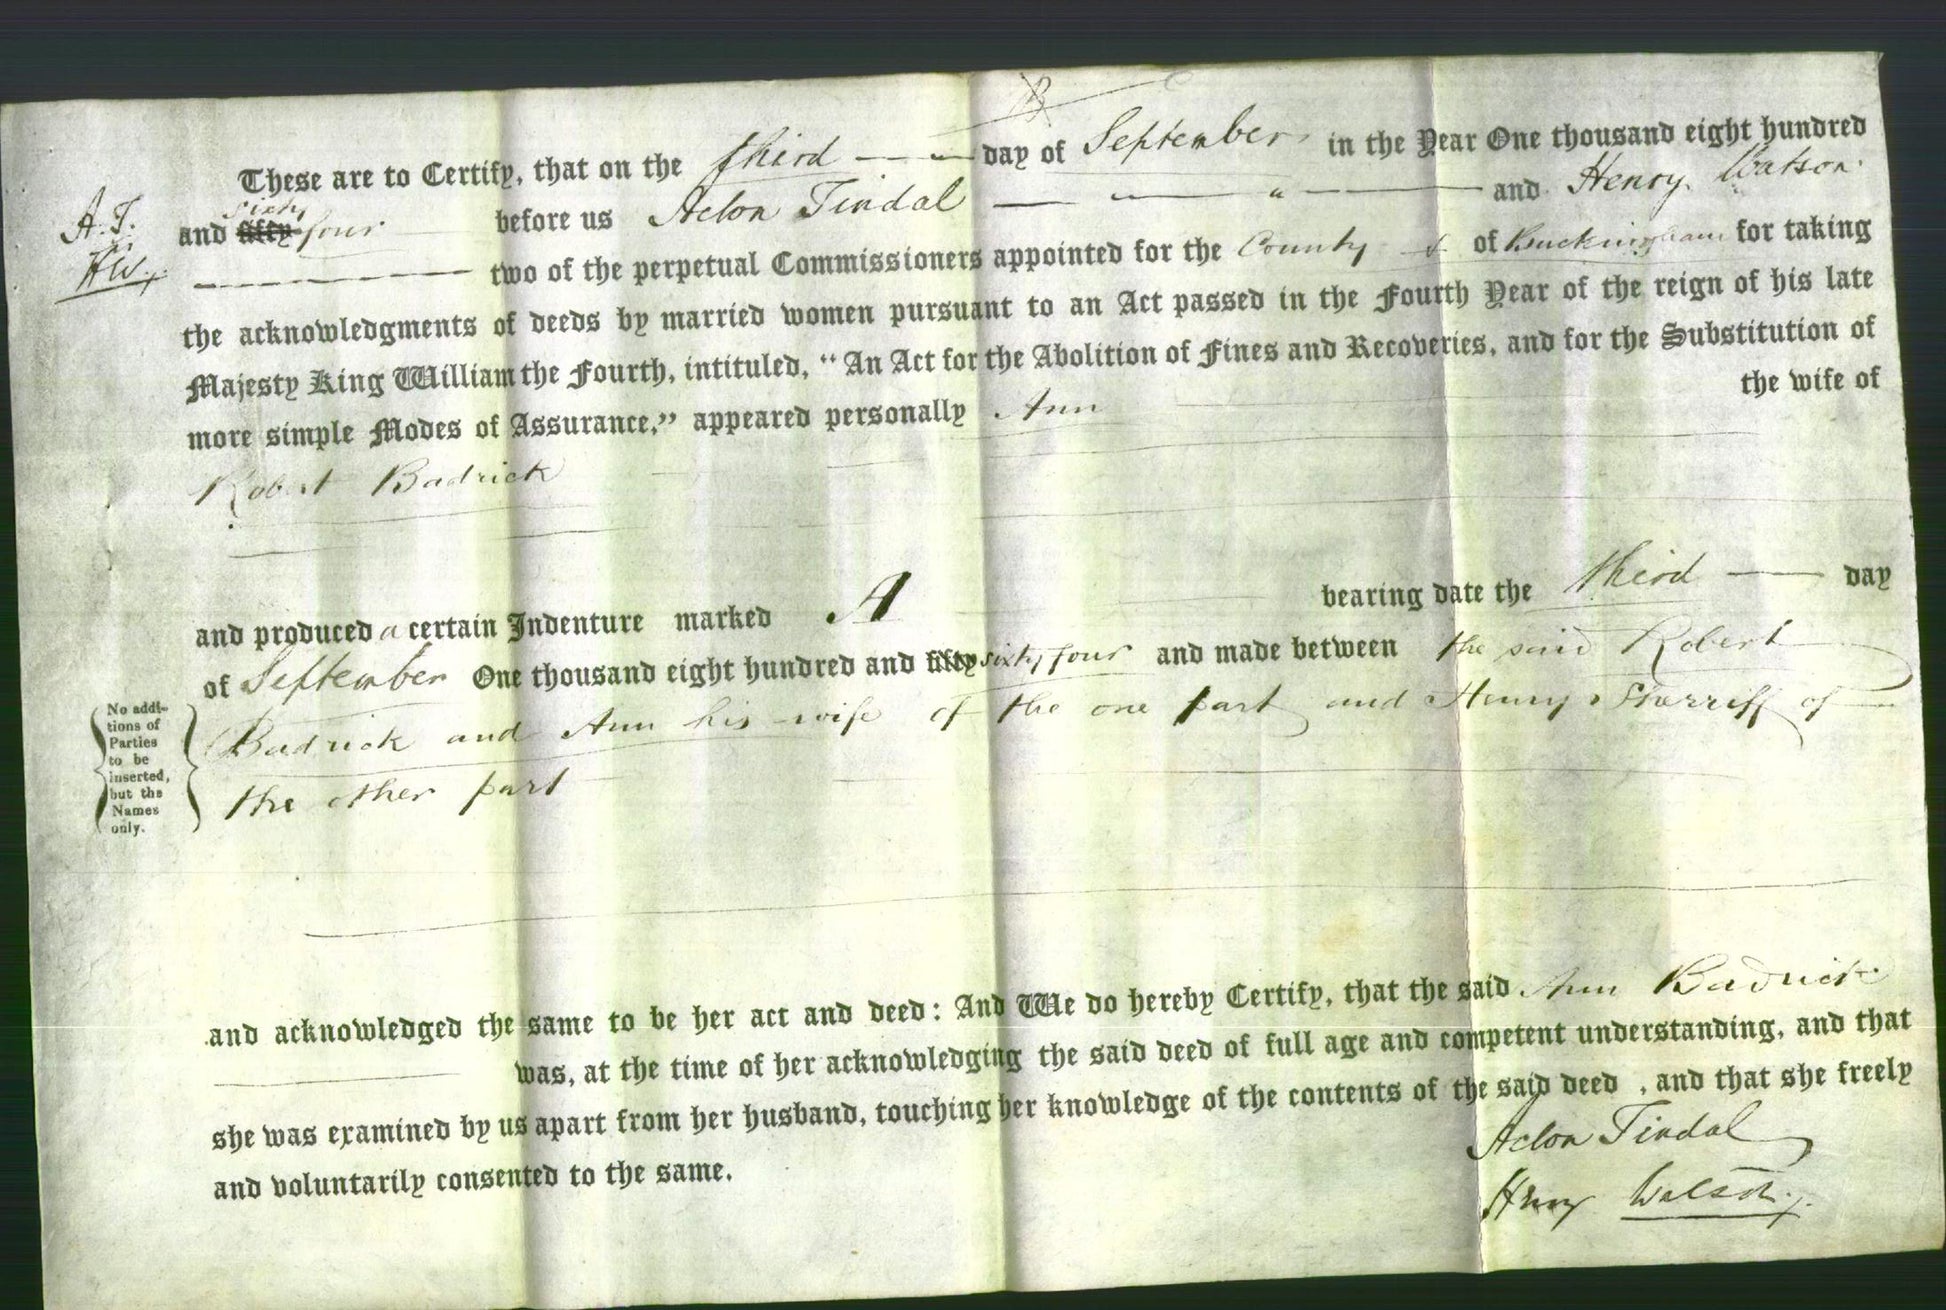 B
These are to Certify, that on the third day of September in the Year One thousand eight hundred
A.T.
H.W.
and fifty sixty four before us Acton Tindal and Henry Watson
two of the perpetual Commissioners appointed for the County of Buckingham for taking
the acknowledgments of deeds by married women pursuant to an Act passed in the Fourth Year of the reign of his late
Majesty King William the Fourth, intituled, “An Act for the Abolition of Fines and Recoveries, and for the Substitution of
more simple Modes of Assurance,” appeared personally Ann the wife of
Robert Badrick
and produced a certain Indenture marked A bearing date the third day
of September One thousand eight hundred and fifty sixty four and made between the said Robert
Badrick and Ann his wife of the one part and Henry Sherriff of
the other part
No addi-
tions of
Parties
to be
inserted,
but the
Names
only.
and acknowledged the same to be her act and deed: And We do hereby Certify, that the said Ann Badrick
was, at the time of her acknowledging the said deed of full age and competent understanding, and that
she was examined by us apart from her husband, touching her knowledge of the contents of the said deed , and that she freely
and voluntarily consented to the same.
Acton Tindal
Henry Watson